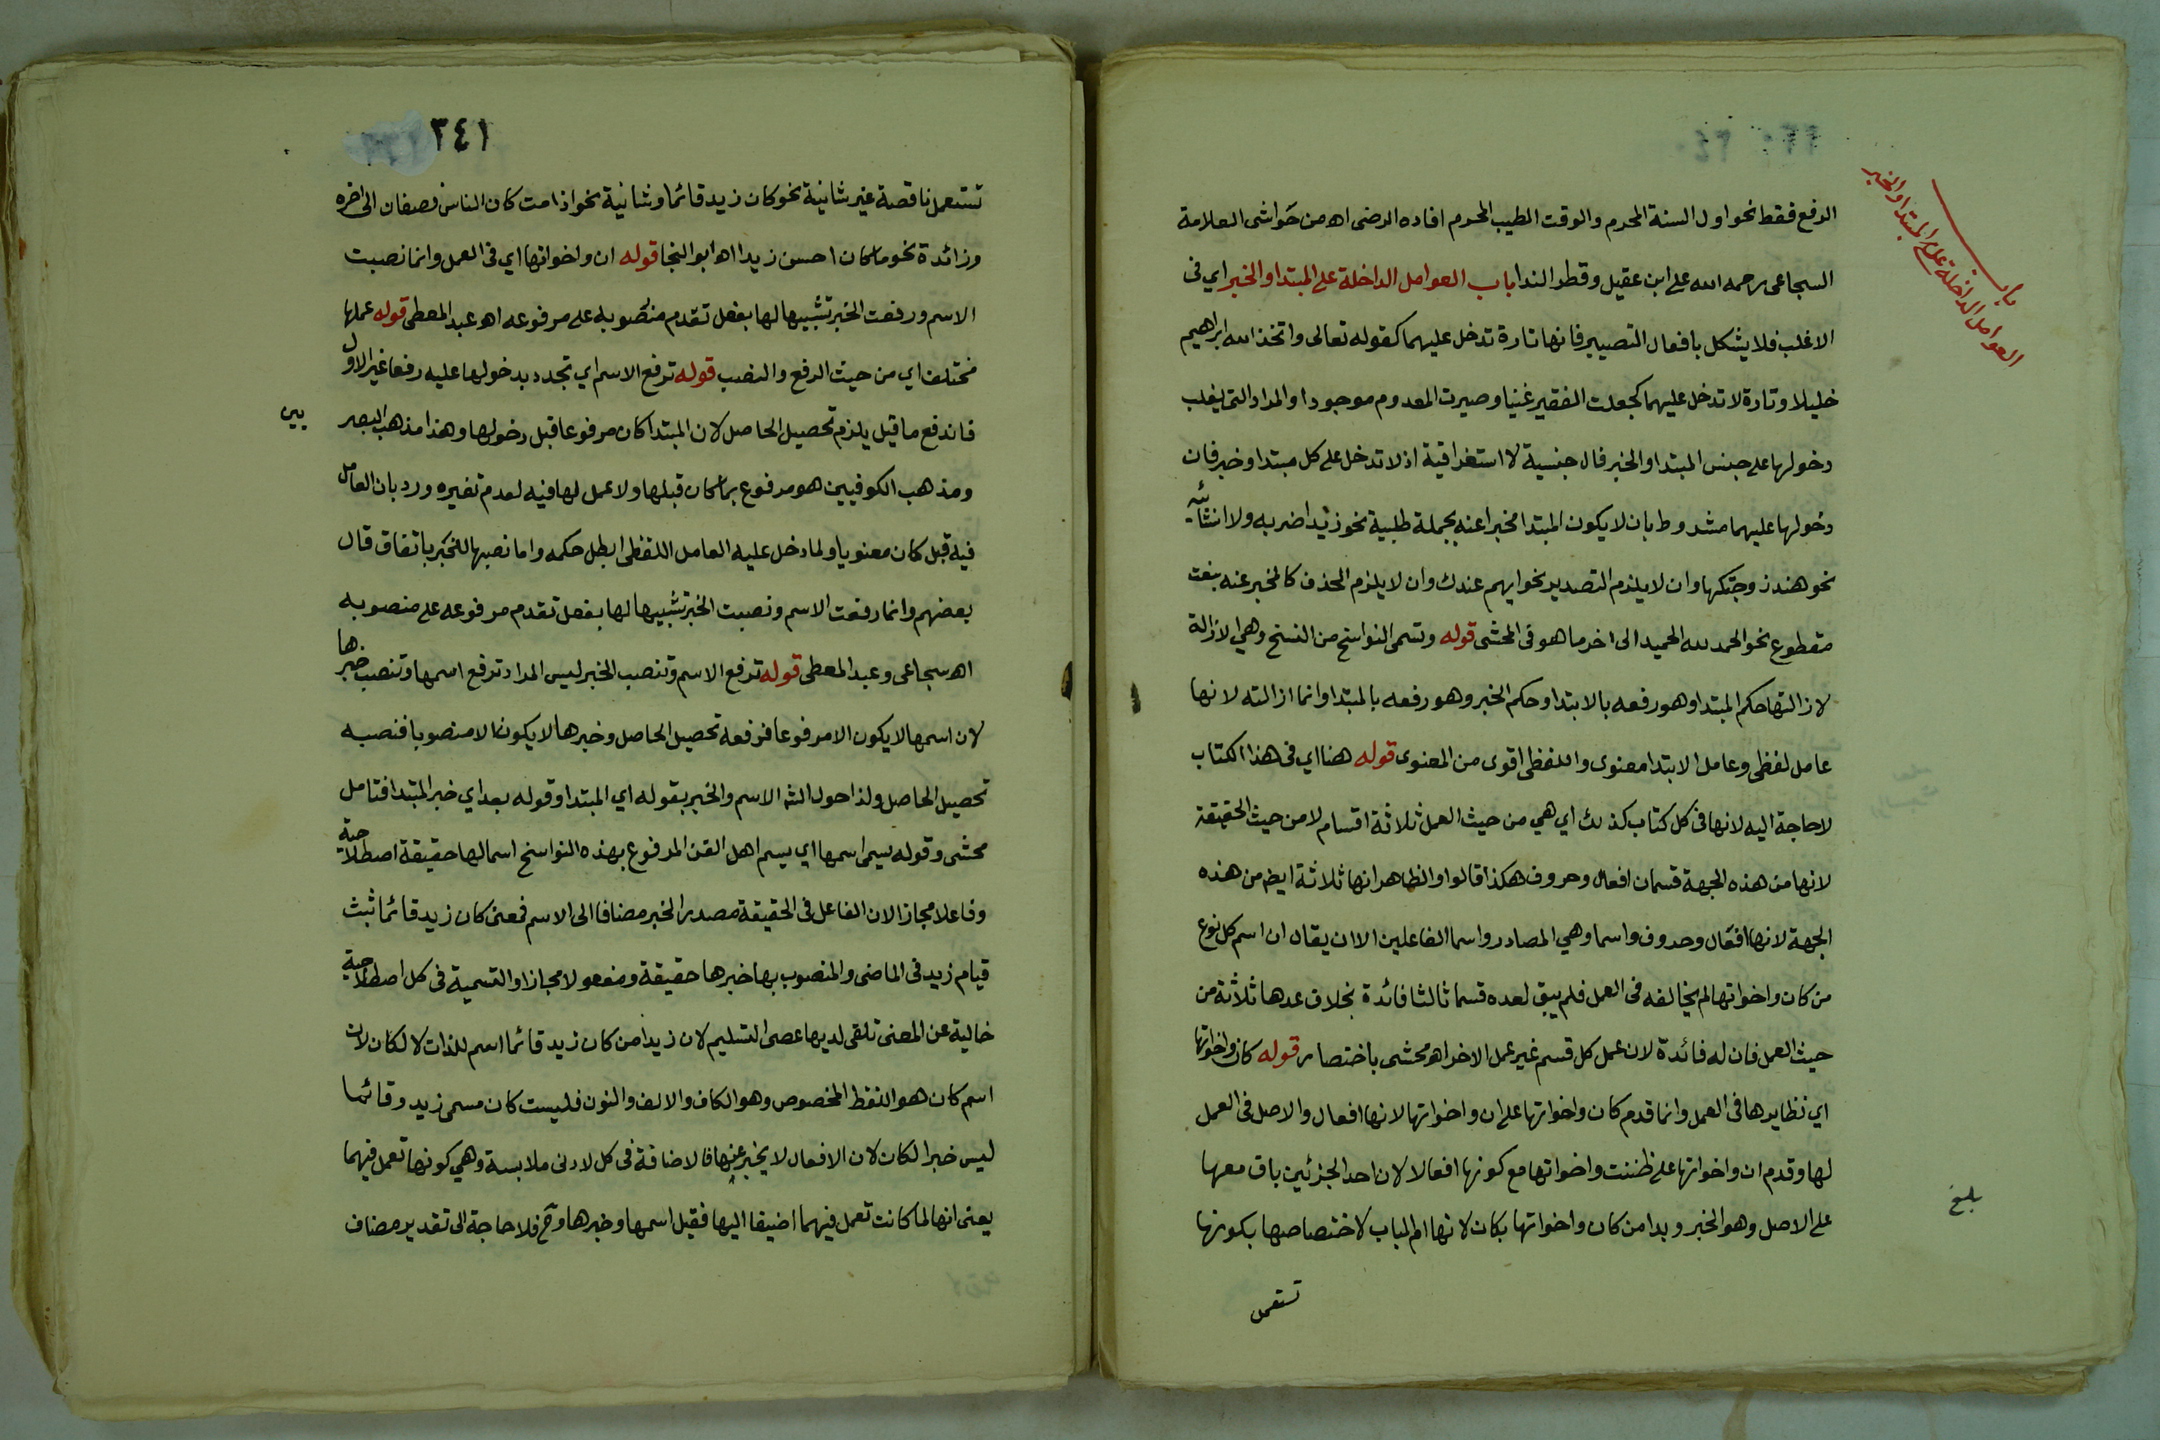 باب
العوامل الداخلة على المبتدا والخبر
الرفع فقط نحو اول السنة المحرم والوقت الطيب المحرم افاده الرضى اه من حواشى العلامة
السجاعى رحمه الله على ابن عقيل وقطر الندا باب العوامل الداخلة على المبتدا والخبر اي فى
الاغلب فلا يشكل بافعال التصيير فانها تارة تدخل عليهما كقوله تعالى واتخذ الله ابراهيم
خليلا وتارة لا تدخل عليهما كجعلت الفقير غنيا وصيرت المعدوم موجودا والمراد التى يغلب
دخولها على جنس المبتدا والخبر فال جنسية لا استغراقية اذ لا تدخل على كل مبتدا وخبر فان
دخولها عليهما مشروط بان لا يكون المبتدا مخبرا عنه بجملة طلبية نحو زيد اضربه ولا انشائية
نحو هند زوجتكها وان لا يلزم التصدير نحو ايهم عندك وان لا يلزم الحذف كالمخبر عنه بنعت
مقطوع نحو الحمد لله الحميد الى اخر ما هو فى المحشى قوله وتسمى النواسخ من النسخ وهي الازالة
لازالتها حكم المبتدا وهو رفعه بالابتدا وحكم الخبر وهو رفعه بالمبتدا وانما ازالته لانها
عامل لفظى وعامل الابتدا معنوى واللفظى اقوى من المعنوى قوله هنا اي فى هذا الكتاب
لا حاجة اليه لانها فى كل كتاب كذلك اي هي من حيث العمل ثلاثة اقسام لا من حيث الحقيقة
لانها من هذه الجهة قسمان افعال وحروف هكذا قالوا والظاهر انها ثلاثة ايض من هذه
الجهة لانها افعال وحروف واسما وهي المصادر واسما الفاعلين الا ان يقال ان اسم كل نوع
من كان واخواتها لم يخالفه فى العمل فلم يبق لعده قسما ثالثا فائدة بخلاف عدها ثلاثة من
حيث العمل فان له فائدة لان عمل كل قسم غير عمل الاخر اه محشى باختصار قوله كان واخواتها
اي نظايرها فى العمل وانما قدم كان واخواتها على ان واخواتها لانها افعال والاصل فى العمل
لها وقدم ان واخواتها على ظننت واخواتها مع كونها افعالا لان احد الجزئين باق معها
على الاصل وهو الخبر وبدا من كان واخواتها بكان لانها ام الباب لاختصاصها بكونها
بلغ
تستعمل
٣٤١
تستعمل ناقصة غير شانية نحو كان زيد قائما وشانية نحو اذا مت كان الناس نصفان الى اخره
وزائدة نحو ما كان احسن زيدا اه ابو النجا قوله ان واخواتها اي فى العمل وانما نصبت
الاسم ورفعت الخبر تشبيها لها بفعل تقدم منصوبه على مرفوعه اه عبد المعطى قوله عملها
مختلف اي من حيث الرفع والنصب قوله ترفع الاسم اي تجدد بدخولها عليه رفعا غير الاول
فاندفع ما قيل يلزم تحصيل الحاصل لان المبتدا كان مرفوعا قبل دخولها وهذا مذهب البصر
يين
ومذهب الكوفيين هو مرفوع بما كان قبلها ولا عمل لها فيه لعدم تغيره ورد بان العامل
فيه قبل كان معنويا ولما دخل عليه العامل اللفظى ابطل حكمه واما نصبها للخبر باتفاق قال
بعضهم وانما رفعت الاسم ونصبت الخبر تشبيها لها بفعل تقدم مرفوعه على منصوبه
اه سجاعى وعبد المعطى قوله ترفع الاسم وتنصب الخبر ليس المراد ترفع اسمها وتنصب خبرها
لان اسمها لا يكون الا مرفوعا فرفعه تحصيل الحاصل وخبرها لا يكون الا منصوبا فنصبه
تحصيل الحاصل ولذا حول الش الاسم والخبر بقوله اي المبتدا وقوله بعد اي خبر المبتدا فتامل
محشى وقوله يسمى اسمها اي يسم اهل الفن المرفوع بهذه النواسخ اسما لها حقيقة اصطلاحية
وفاعلا مجازا لان الفاعل فى الحقيقة مصدر الخبر مضافا الى الاسم فمعنى كان زيد قائما ثبت
قيام زيد فى الماضى والمنصوب بها خبرها حقيقة ومفعولا مجازا والتسمية فى كل اصطلاحية
خالية عن المعنى تلقى لديها عصى التسليم لان زيدا من كان زيد قائما اسم للذات لا لكان لان
اسم كان هو اللفظ المخصوص وهو الكاف والالف والنون فليست كان مسمى زيد وقائما
ليس خبرا لكان لان الافعال لا يخبر عنها فالاضافة فى كل لادنى ملابسة وهي كونها تعمل فيهما
يعنى انها لما كانت تعمل فيهما اضيفا اليها فقيل اسمها وخبرها وح فلا حاجة الى تقدير مضاف